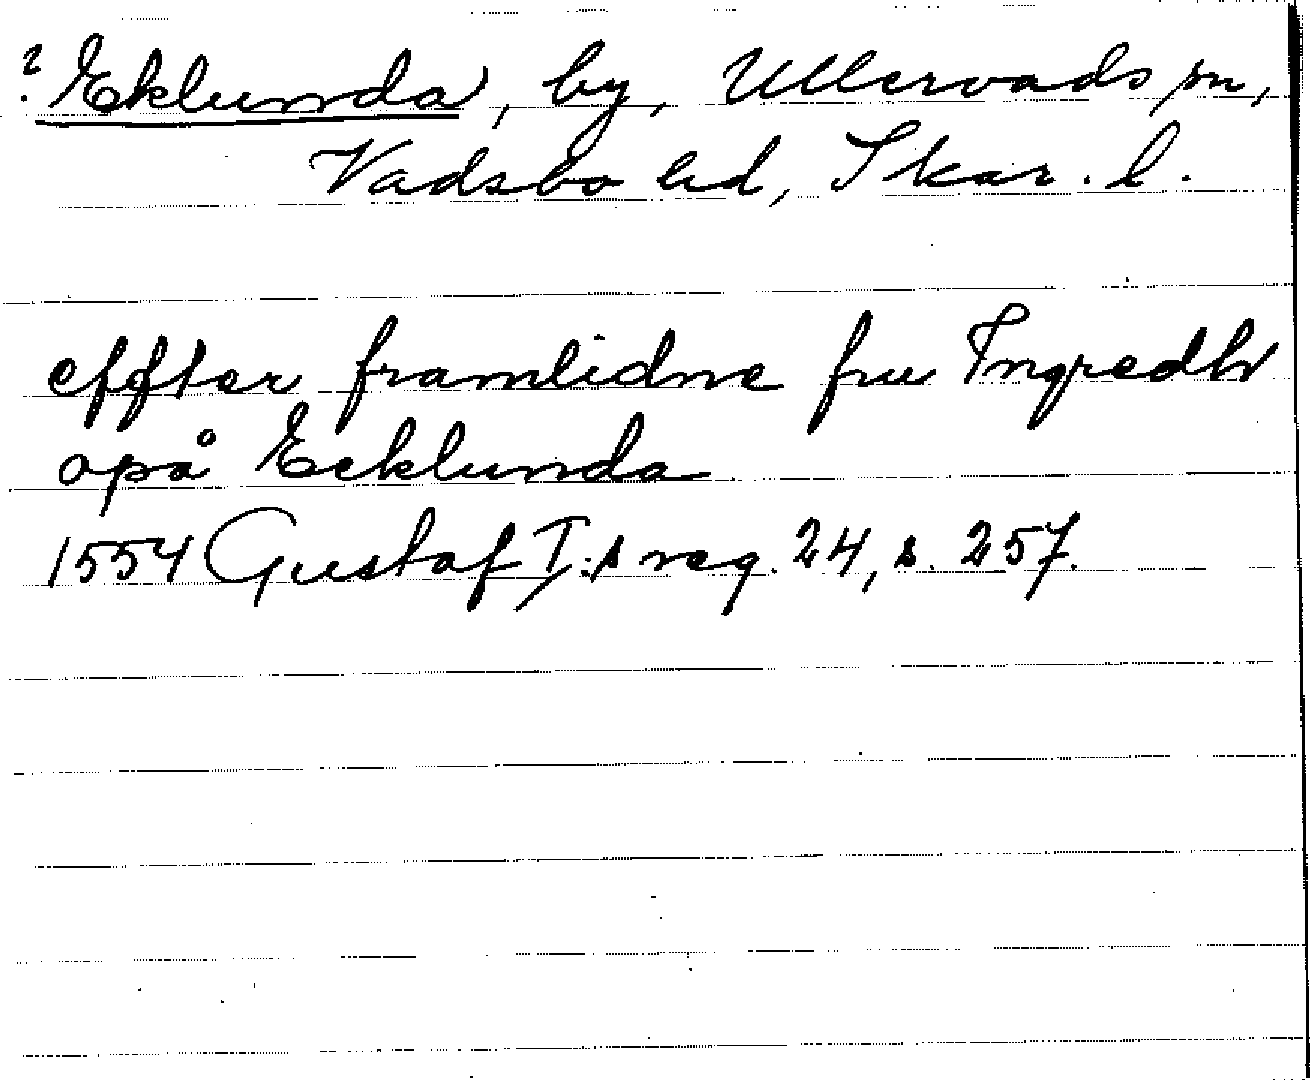 ? Eklunda, by, Ullervads sn,
Vadsbo hd, Skar. l.
effter framlidne fru Ingredh
opå Ecklunda
1554 Gustaf I:s reg. 24, s. 257.